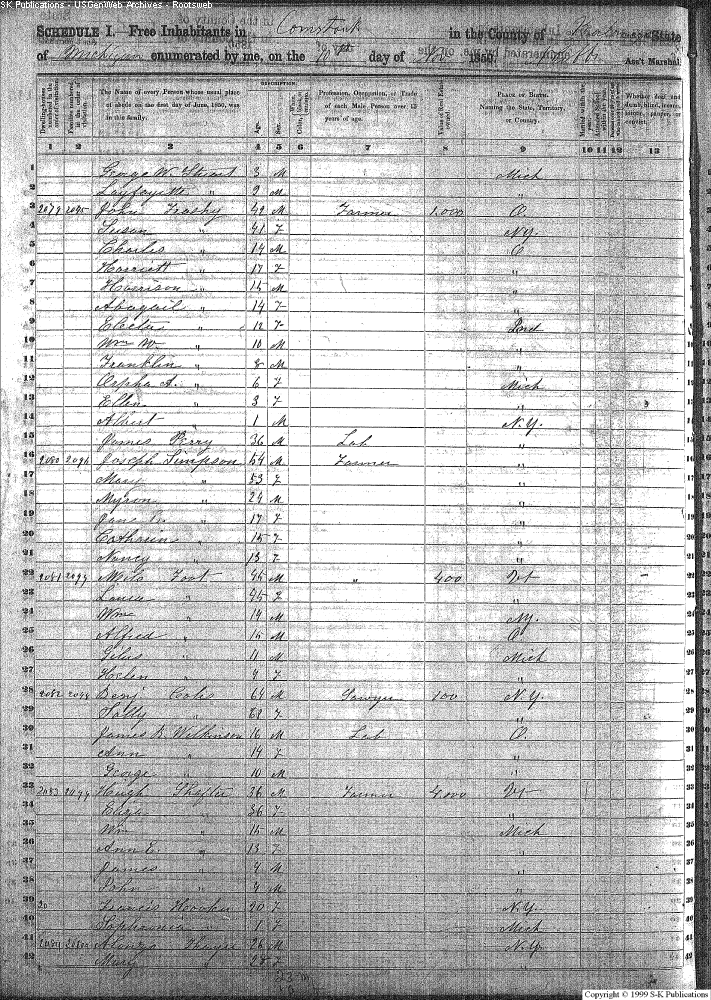 SK Publications - USGenWeb Archives - Rootsweb
SCHEDULE I. Free Inhabitants in Comstock in the County of State
of Michigan enumerated by me, on the day of 1850. Ass't Marshal
DESCRIPTION.
Dwelling-houses numbered in the order of visitation. Families numbered in the order of visitation. The Name of every Person whose usual place of abode on the first day of June, 1850, was in this family. Age. Sex. White, Color, black, or mulatto. Profession, Occupation, or Trade of each Male Person over 15 years of age. Value of Real Estate owned. PLACE OF BIRTH. Naming the State, Territory, or Country. Married within the year. Whether deaf and dumb, blind, insane, idiotic, pauper, or convict.
1 2 3 4 5 6 7 8 9 10 11 12 13
1 George W. 3 M Mich
2 Layfayette " 2 M "
3 2079 2095 John 42 M Farmer 1,000 O.
4 Susan " 41 F N.Y.
5 Charles " 19 M O
6 Harriett " 17 F "
7 Harrison " 15 M "
8 Abagail " 14 F "
9 Electa " 12 F Ind
10 Wm W. " 10 M "
11 Franklin " 8 M "
12 Orpha A. " 6 F Mich
13 Ellen " 3 F "
14 Albert " 1 M N.Y.
15 James Perry 36 M Lab "
16 2080 2096 Joseph Simpson 54 M Farmer "
17 Mary " 53 F "
18 Myron " 24 M "
19 Jane " 17 F "
20 Catharin " 15 F "
21 Nancy " 13 F "
22 2081 2097 Milo Foot 46 M " 400 Vt
23 " 45 F "
24 Wm " 19 M N.Y.
25 Alfred " 16 M O
26 Giles " 11 M Mich
27 Helen " 9 F "
28 2082 2098 Benj Cole 64 M Sawyer 100 N.Y.
29 Sally " F "
30 James B. Wilkinson 16 M Lab O.
31 Ann " 14 F "
32 George " 10 M "
33 2083 2099 Hugh Shafter 36 M Farmer 4,000 Vt
34 Eliza " 36 F "
35 Wm " 15 M Mich
36 Ann E. " 13 F "
37 James " 9 M "
38 John " 4 M "
39 Francis Hooker 20 F N.Y.
40 Sophronia " 1 F Mich
41 2084 2100 Alonzo 26 M N.Y.
42 Mary " 28 F
Copyright © 1999 S-K Publications